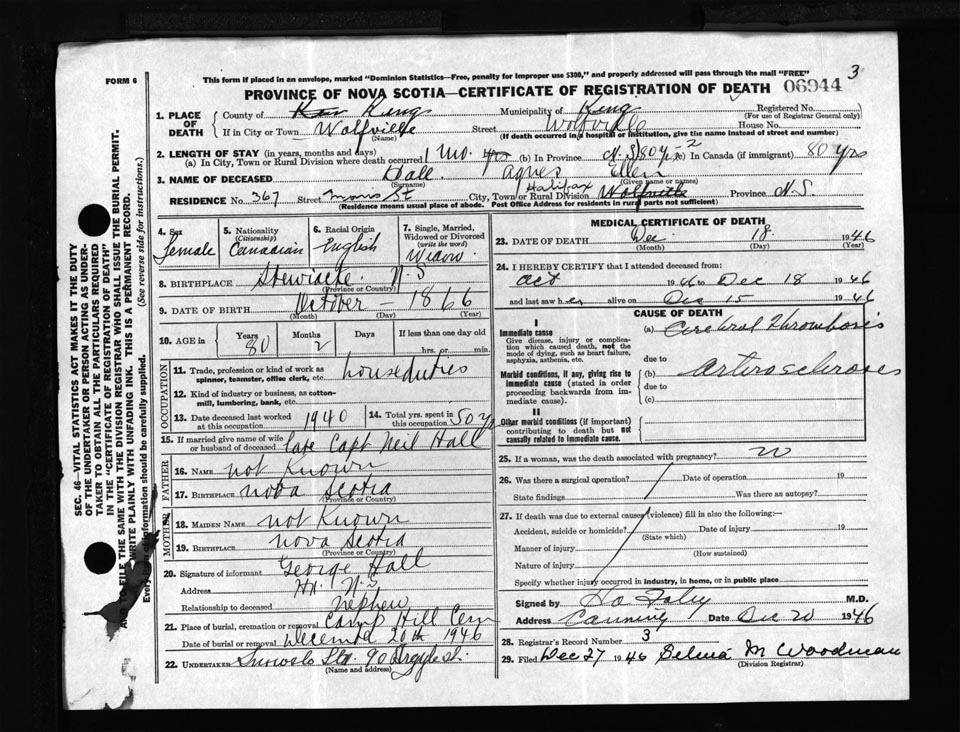 3
FORM 6
This form if placed in an envelope, marked "Dominion Statistics—Free, penalty for improper use $300," and properly addressed will pass through the mail "FREE"
PROVINCE OF NOVA SCOTIA—CERTIFICATE OF REGISTRATION OF DEATH 06944
SEC. 46—VITAL STATISTICS ACT MAKES IT THE DUTY
OF THE UNDERTAKER OR PERSON ACTING AS UNDER-
TAKER TO OBTAIN ALL THE PARTICULARS REQUIRED
IN THE "CERTIFICATE OF REGISTRATION OF DEATH"
AND TO FILE THE SAME WITH THE DIVISION REGISTRAR WHO SHALL ISSUE THE BURIAL PERMIT.
WRITE PLAINLY WITH UNFADING INK. THIS IS A PERMANENT RECORD.
Every item of information should be carefully supplied. (See reverse side for instructions.)
1. PLACE OF DEATH County of Kings Municipality of Kings Registered No.
(For use of Registrar General only)
If in City or Town Wolfville Street Wolfville House No.
(Name) (If death occurred in a hospital or institution, give the name instead of street and number)
2. LENGTH OF STAY (in years, months and days)
(a) In City, Town or Rural Division where death occurred 1 Mo. yrs (b) In Province N.S. 80 yrs-2 (c) In Canada (if immigrant) 80 yrs
3. NAME OF DECEASED Hall Agnes Ellen
(Surname) (Given name or names)
RESIDENCE No. 367 Street Morris St City, Town or Rural Division Halifax Wolfville Province N.S.
(Residence means usual place of abode. Post Office Address for residents in rural parts not sufficient)
4. Sex
Female
5. Nationality
(Citizenship)
Canadian
6. Racial Origin
English
7. Single, Married,
Widowed or Divorced
(write the word)
Widow
8. BIRTHPLACE Stewiacke N.S
(Province or Country)
9. DATE OF BIRTH October - 1866
(Month) (Day) (Year)
10. AGE in Years Months Days If less than one day old
80 2 hrs. or min.
OCCUPATION
11. Trade, profession or kind of work as
spinner, teamster, office clerk, etc. house duties
12. Kind of industry or business, as cotton-
mill, lumbering, bank, etc.
13. Date deceased last worked
at this occupation 1940
14. Total yrs. spent in
this occupation 50 yr
15. If married give name of wife
or husband of deceased late Capt Neil Hall
FATHER
16. NAME not Known
17. BIRTHPLACE nova Scotia
(Province or Country)
MOTHER
18. MAIDEN NAME not Known
19. BIRTHPLACE nova Scotia
(Province or Country)
20. Signature of informant George Hall
Address Hx. N.S
Relationship to deceased nephew
21. Place of burial, cremation or removal Camp Hill Cem
Date of burial or removal December 20th 1946
22. UNDERTAKER Snows Ltd 90 Argyle St.
(Name and address)
MEDICAL CERTIFICATE OF DEATH
23. DATE OF DEATH Dec. 18 1946
(Month) (Day) (Year)
24. I HEREBY CERTIFY that I attended deceased from:
Oct 1946 to Dec 18 1946
and last saw her alive on Dec 15 1946
CAUSE OF DEATH
I
Immediate cause
Give disease, injury or complica-
tion which caused death, not the
mode of dying, such as heart failure,
asphyxia, asthenia, etc.
(a) Cerebral Thrombosis
due to
Morbid conditions, if any, giving rise to
immediate cause (stated in order
proceeding backwards from im-
mediate cause).
(b) Arteriosclerosis
due to
(c)
II
Other morbid conditions (if important)
contributing to death but not
causally related to immediate cause.
25. If a woman, was the death associated with pregnancy? no
26. Was there a surgical operation? Date of operation 19
State findings Was there an autopsy?
27. If death was due to external causes (violence) fill in also the following:—
Accident, suicide or homicide? Date of injury 19
(State which)
Manner of injury
(How sustained)
Nature of injury
Specify whether injury occurred in industry, in home, or in public place
Signed by M.D.
Address Canning Date Dec 20 1946
28. Registrar's Record Number 3
29. Filed Dec 27 1946 Selma M Woodman
(Division Registrar)